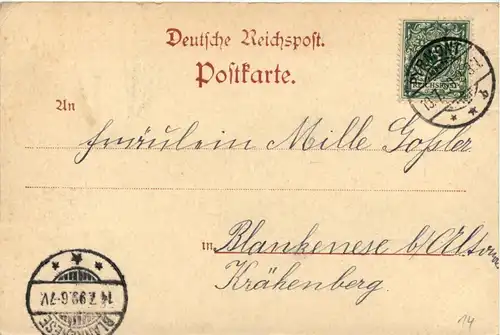 Deutsche Reichspost.
Postkarte.
REICHSPOST
PYRMONT
An
Fräulein Mille Goßler
in Blankenese b/Altona
Krähenberg.
14.7.99.6-7V.
BLANKENESE
14